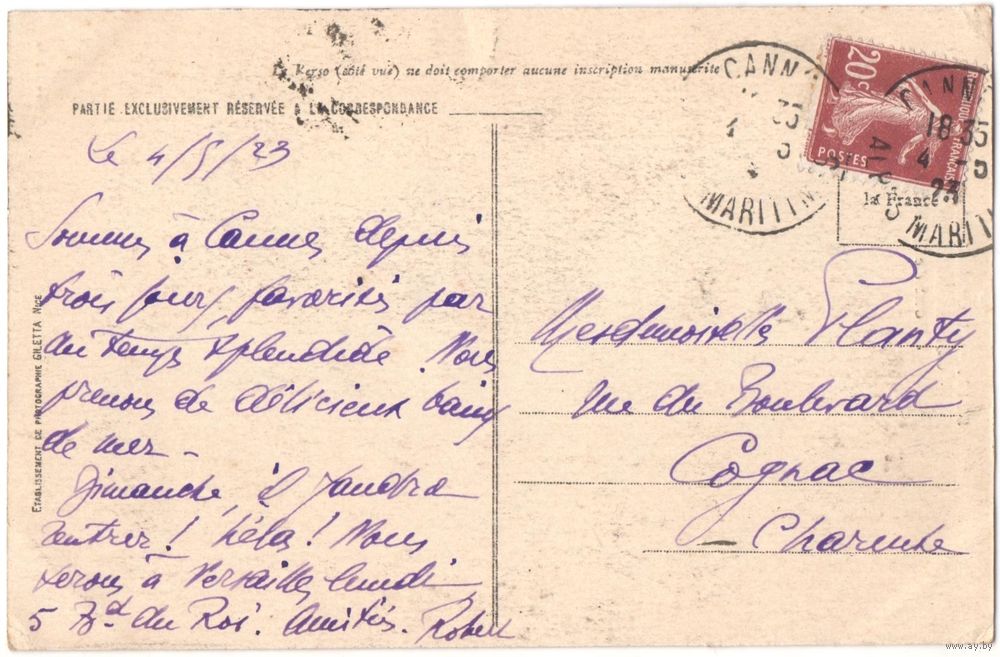 Le Verso (côté vue) ne doit comporter aucune inscription manuscrite
PARTIE EXCLUSIVEMENT RÉSERVÉE A LA CORRESPONDANCE
Le 4/5/23
Sommes à Cannes depuis
trois jours, favorisés par
du temps splendide. Nous
prenons de délicieux bains
de mer -
Dimanche, il faudra
rentrer! hélas! Nous
serons à Versailles lundi
5 Bd du Roi. Amitiés. Robert
ETABLISSEMENT DE PHOTOGRAPHIE GILETTA NICE
CANNES
MARITIM
20c
POSTES
CANNES
18 35
4 - 5
23
ALP
MARITIM
la France
Mesdemoiselles Planty
rue du Boulevard
Cognac
Charente
www.ay.by